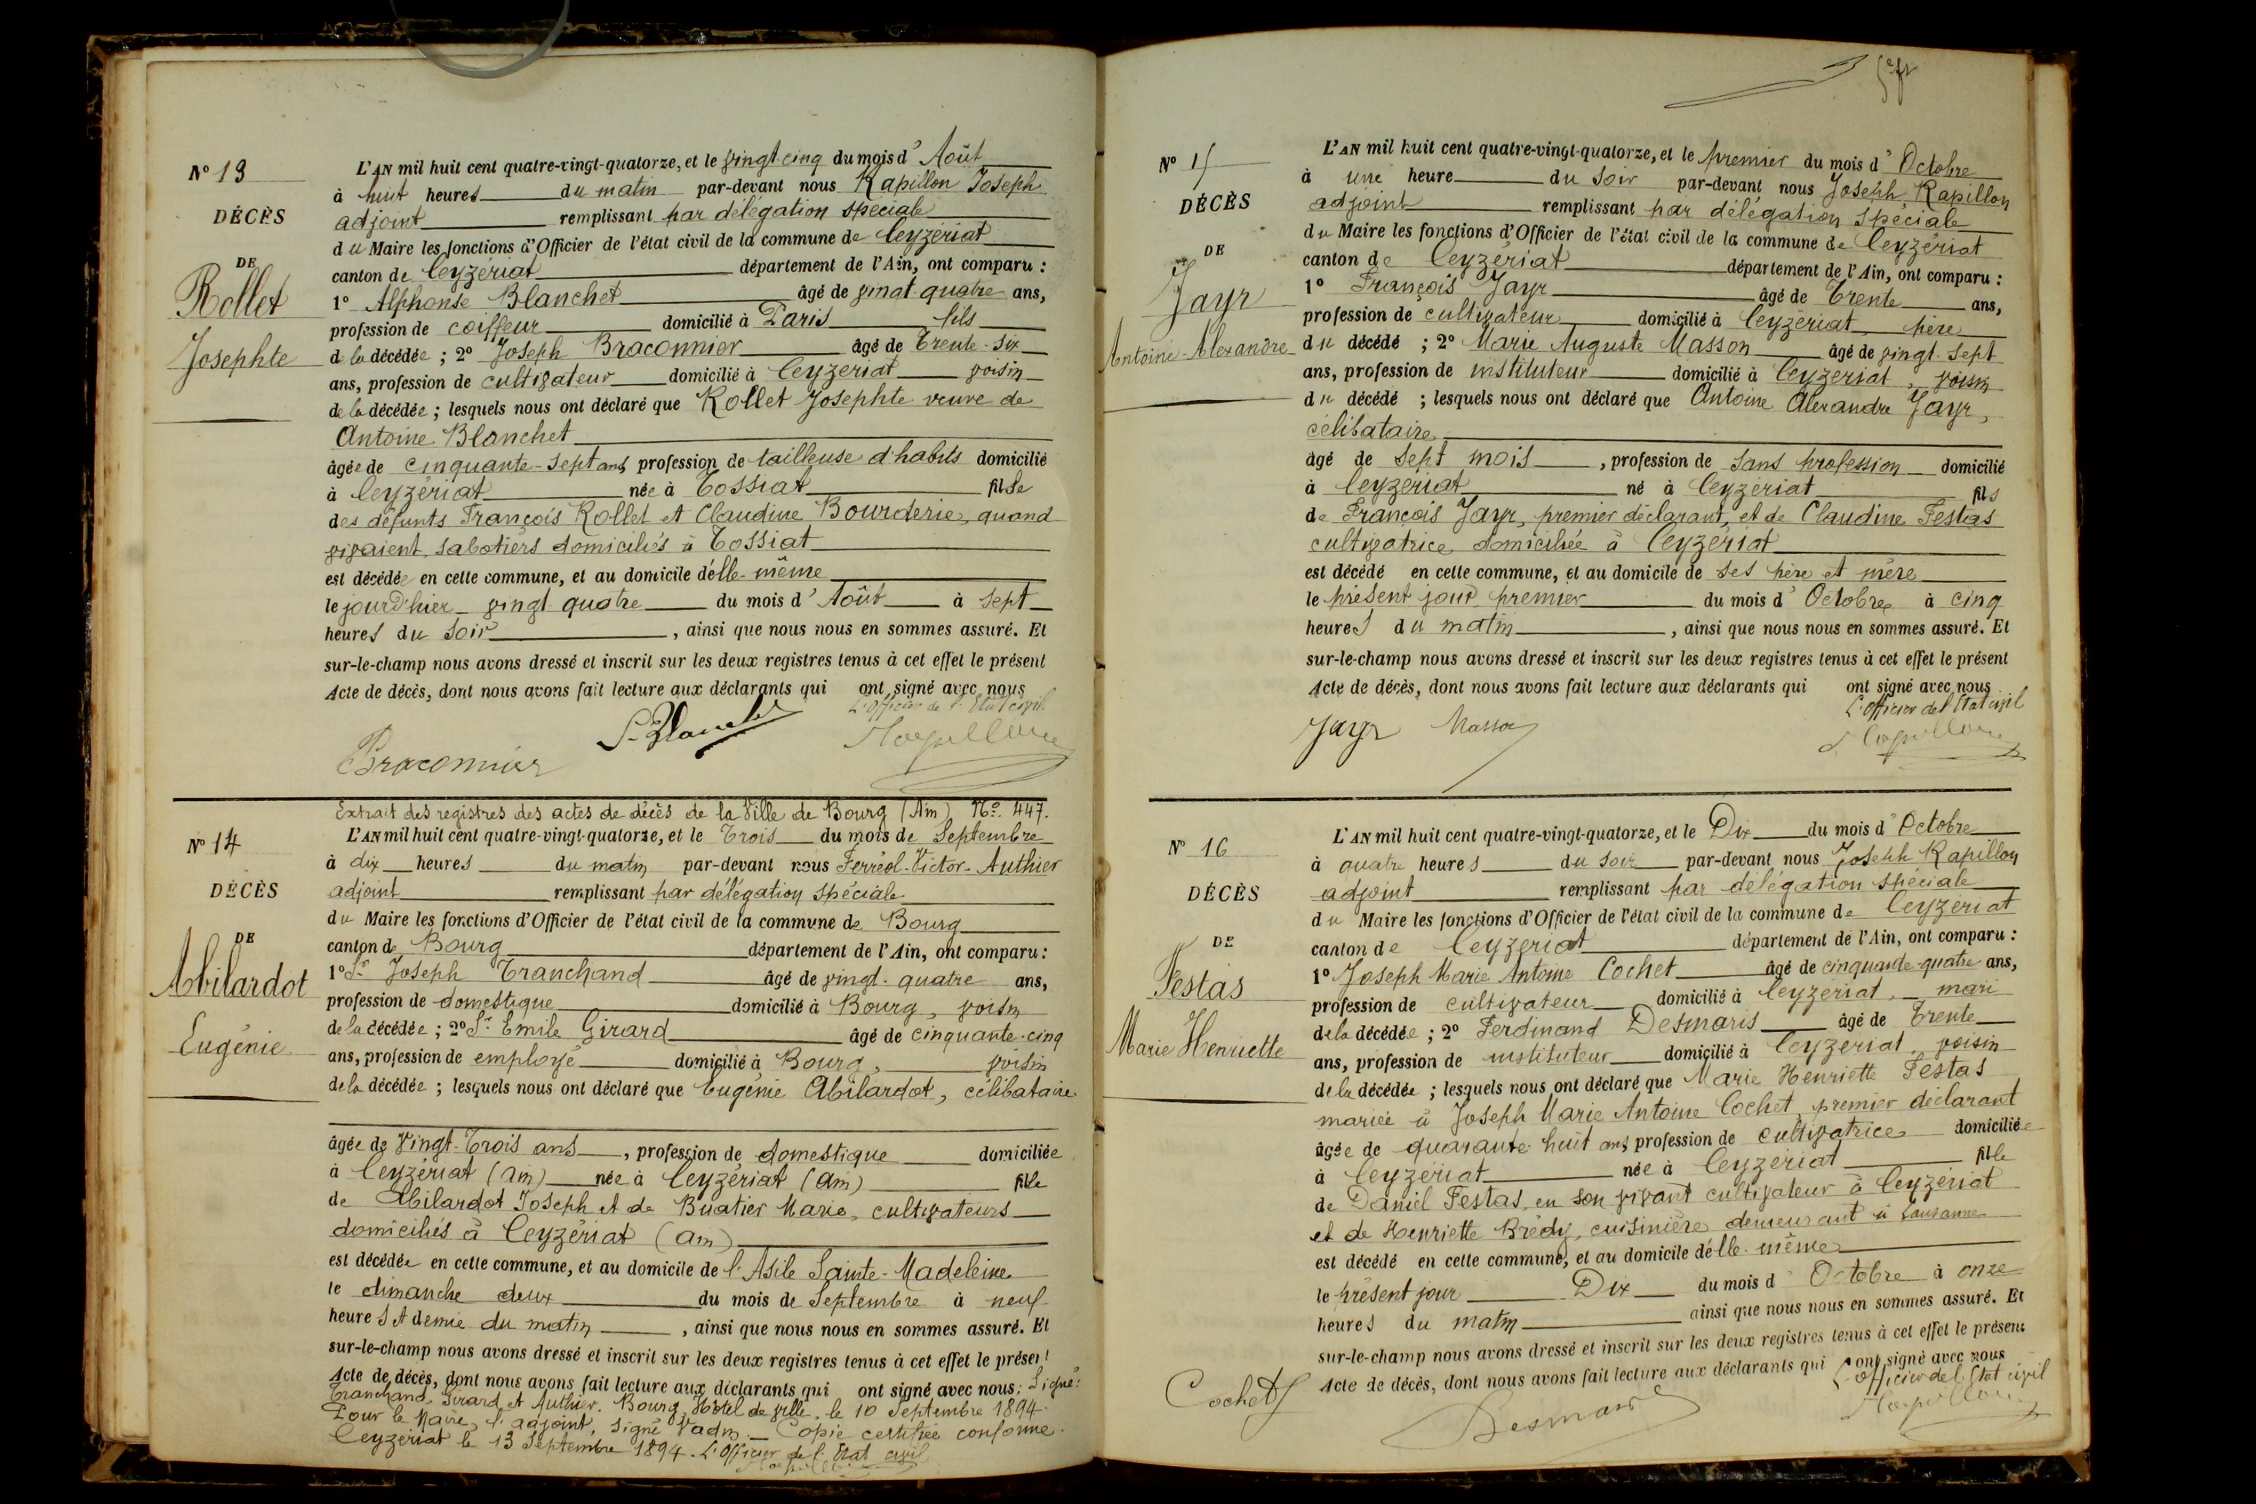 Nº 13
DÉCÈS
DE
Rollet
Josephte
L'AN mil huit cent quatre-vingt-quatorze, et le vingt-cinq du mois d'Août
à huit heures du matin par-devant nous Rapillon Joseph
adjoint remplissant par délégation spéciale
du Maire les fonctions d'Officier de l'état civil de la commune de Ceyzériat
canton de Ceyzériat département de l'Ain, ont comparu :
1º Alphonse Blanchet âgé de vingt-quatre ans,
profession de coiffeur domicilié à Paris fils
de la décédée ; 2º Joseph Braconnier âgé de Trente-six
ans, profession de cultivateur domicilié à Ceyzériat voisin
de la décédée ; lesquels nous ont déclaré que Rollet Josephte veuve de
Antoine Blanchet
âgée de cinquante-sept ans profession de tailleuse d'habits domicilié
à Ceyzériat née à Tossiat fille
des défunts François Rollet et Claudine Bourderie, quand
vivaient sabotiers domiciliés à Tossiat
est décédée en cette commune, et au domicile d'elle-même
le jourd'hier vingt quatre du mois d'Août à sept
heures du soir, ainsi que nous nous en sommes assuré. Et
sur-le-champ nous avons dressé et inscrit sur les deux registres tenus à cet effet le présent
Acte de décès, dont nous avons fait lecture aux déclarants qui ont signé avec nous
L'Officier de l'Etat civil
Blanchet
Rapillon
Braconnier
Extrait des registres des actes de décès de la Ville de Bourg (Ain) Nº 447.
Nº 14
DÉCÈS
DE
Abilardot
Eugénie
L'AN mil huit cent quatre-vingt-quatorze, et le Trois du mois de Septembre
à dix heures du matin par-devant nous Ferréol-Victor-Authier
adjoint remplissant par délégation spéciale
du Maire les fonctions d'Officier de l'état civil de la commune de Bourg
canton de Bourg département de l'Ain, ont comparu :
1º Sr Joseph Tranchand âgé de vingt-quatre ans,
profession de domestique domicilié à Bourg, voisin
de la décédée ; 2º Sr Emile Girard âgé de cinquante-cinq
ans, profession de employé domicilié à Bourg, voisin
de la décédée ; lesquels nous ont déclaré que Eugénie Abilardot, célibataire
âgée de Vingt-Trois ans, profession de domestique domiciliée
à Ceyzériat (Ain) née à Ceyzériat (Ain) fille
de Abilardot Joseph et de Buatier Marie, cultivateurs
domiciliés à Ceyzériat (Ain)
est décédée en cette commune, et au domicile de l'Asile Sainte-Madeleine
le dimanche deux du mois de Septembre à neuf
heures et demie du matin, ainsi que nous nous en sommes assuré. Et
sur-le-champ nous avons dressé et inscrit sur les deux registres tenus à cet effet le présent
Acte de décès, dont nous avons fait lecture aux déclarants qui ont signé avec nous: Signé:
Tranchand, Girard et Authier. Bourg, Hôtel de ville, le 10 Septembre 1894.
Pour le Maire, l'adjoint, signé Vadin. Copie certifiée conforme
Ceyzériat le 13 Septembre 1894. L'Officier de l'Etat civil
Rapillon
Nº 15
DÉCÈS
DE
Jayr
Antoine-Alexandre
L'AN mil huit cent quatre-vingt-quatorze, et le premier du mois d'Octobre
à une heure du soir par-devant nous Joseph Rapillon
adjoint remplissant par délégation spéciale
du Maire les fonctions d'Officier de l'état civil de la commune de Ceyzériat
canton de Ceyzériat département de l'Ain, ont comparu :
1º François Jayr âgé de Trente ans,
profession de cultivateur domicilié à Ceyzériat père
du décédé ; 2º Marie Auguste Masson âgé de vingt-sept
ans, profession de instituteur domicilié à Ceyzériat, voisin
du décédé ; lesquels nous ont déclaré que Antoine Alexandre Jayr,
célibataire
âgé de sept mois, profession de sans profession domicilié
à Ceyzériat né à Ceyzériat fils
de François Jayr, premier déclarant, et de Claudine Festas
cultivatrice domiciliée à Ceyzériat
est décédé en cette commune, et au domicile de ses père et mère
le présent jour premier du mois d'Octobre à cinq
heures du matin, ainsi que nous nous en sommes assuré. Et
sur-le-champ nous avons dressé et inscrit sur les deux registres tenus à cet effet le présent
Acte de décès, dont nous avons fait lecture aux déclarants qui ont signé avec nous
L'officier de l'Etat civil
Jayr Masson
Rapillon
Nº 16
DÉCÈS
DE
Festas
Marie Henriette
L'AN mil huit cent quatre-vingt-quatorze, et le Dix du mois d'Octobre
à quatre heures du soir par-devant nous Joseph Rapillon
adjoint remplissant par délégation spéciale
du Maire les fonctions d'Officier de l'état civil de la commune de Ceyzériat
canton de Ceyzériat département de l'Ain, ont comparu :
1º Joseph Marie Antoine Cochet âgé de cinquante-quatre ans,
profession de cultivateur domicilié à Ceyzériat, mari
de la décédée ; 2º Ferdinand Desmaris âgé de Trente
ans, profession de instituteur domicilié à Ceyzériat, voisin
de la décédée ; lesquels nous ont déclaré que Marie Henriette Festas
mariée à Joseph Marie Antoine Cochet, premier déclarant
âgée de quarante-huit ans profession de cultivatrice domiciliée
à Ceyzériat née à Ceyzériat fille
de Daniel Festas, en son vivant cultivateur à Ceyzériat
et de Henriette Brédy, cuisinière demeurant à Lausanne
est décédé en cette commune, et au domicile d'elle-même
le présent jour Dix du mois d'Octobre à onze
heures du matin ainsi que nous nous en sommes assuré. Et
sur-le-champ nous avons dressé et inscrit sur les deux registres tenus à cet effet le présent
Acte de décès, dont nous avons fait lecture aux déclarants qui ont signé avec nous
L'officier de l'Etat civil
Cochet
Desmaris
Rapillon